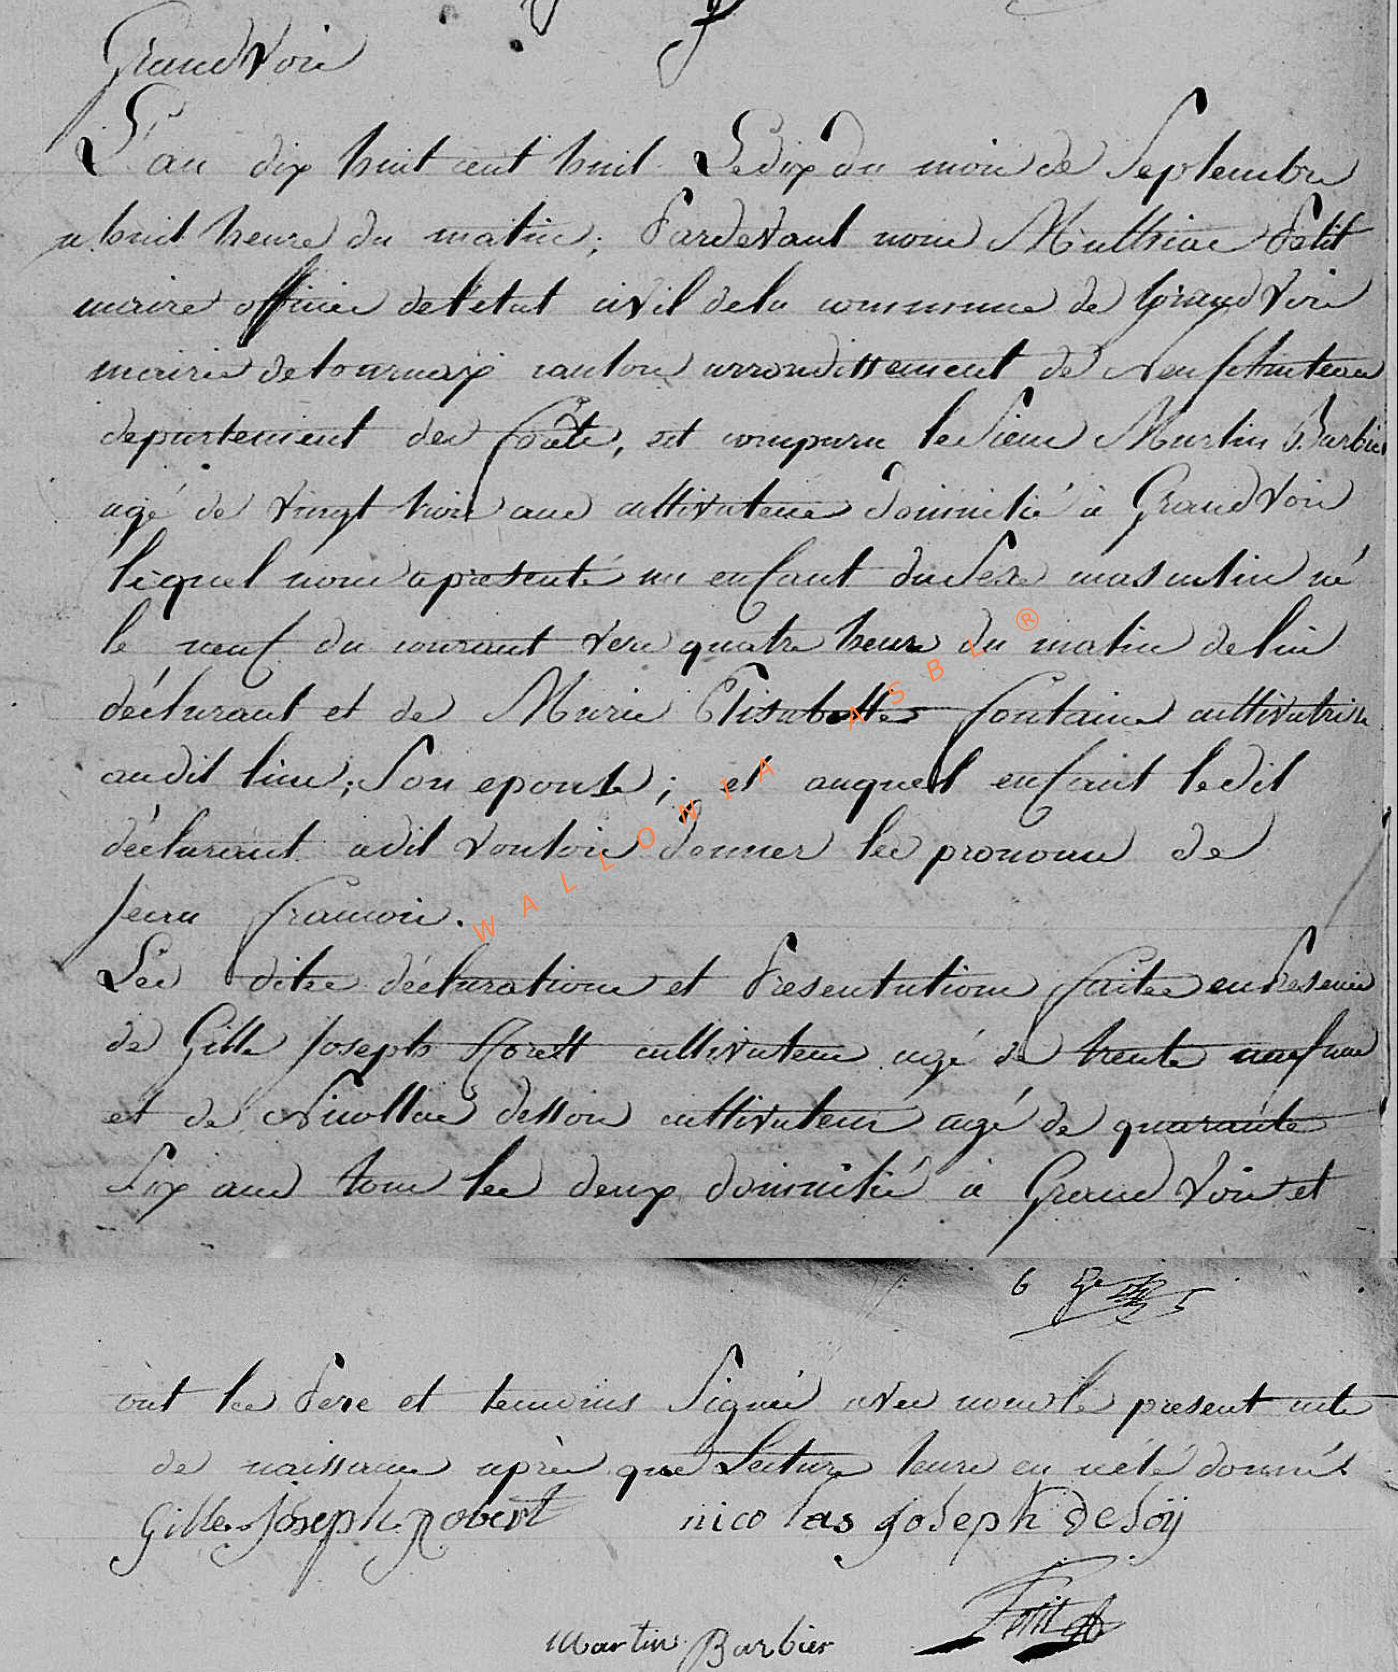 GrandVoir
L'an dix huit cent huit Le dix du mois de Septembre
a huit heure du matin; Pardevant nous Matthias Petit
maire officier de l'etat civil de la commune de GrandVoir
mairie de tournay canton arrondissement de Neufchateau
departement des forêts, est comparu le Sieur Martin Barbier
agé de vingt trois ans cultivateur domicilié à GrandVoir
lequel nous a presenté un enfant du Sexe masculin né
le neuf du courant vers quatre heure du matin de lui
déclarant et de Marie Elisabette fontaine cultivatrisse
audit lieu; Son epouse; et auquel enfant ledit
déclarant a dit vouloir donner les pronoms de
jean francois.
Les dites déclarations et Presentations faites en Presence
de Gille joseph Robert cultivateur agé de trente neuf ans
et de Nicollas dessoi cultivateur agé de quarante
Six ans tous les deux domicilié à Grand Voir et
6
ont les Pere et temoins Signés avec nous le present acte
de naissance après que Lecture leurs en a été donnés
Gille Joseph Robert nicolas joseph desoÿ
Petit
Martin Barbier
WALLONIA ASBL ®